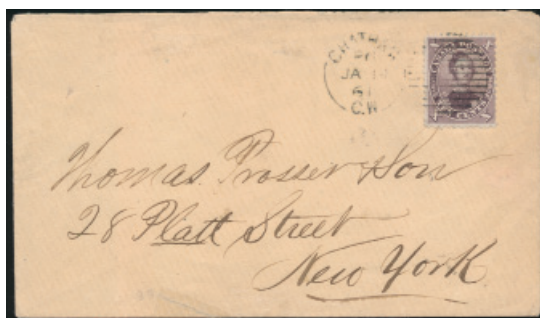 CHATHAM
JA
61
C.W
Thomas Prosser & Son
28 Platt Street
New York